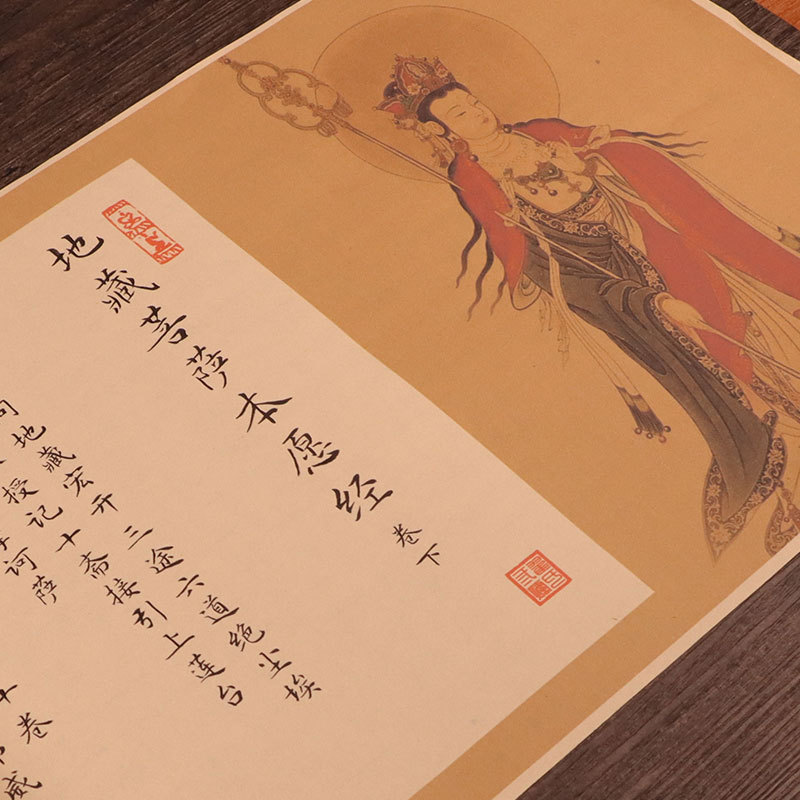 地藏菩萨本愿经 卷下
地藏宏开三途六道绝尘埃
授记十斋接引上莲台
诃萨
卷
威